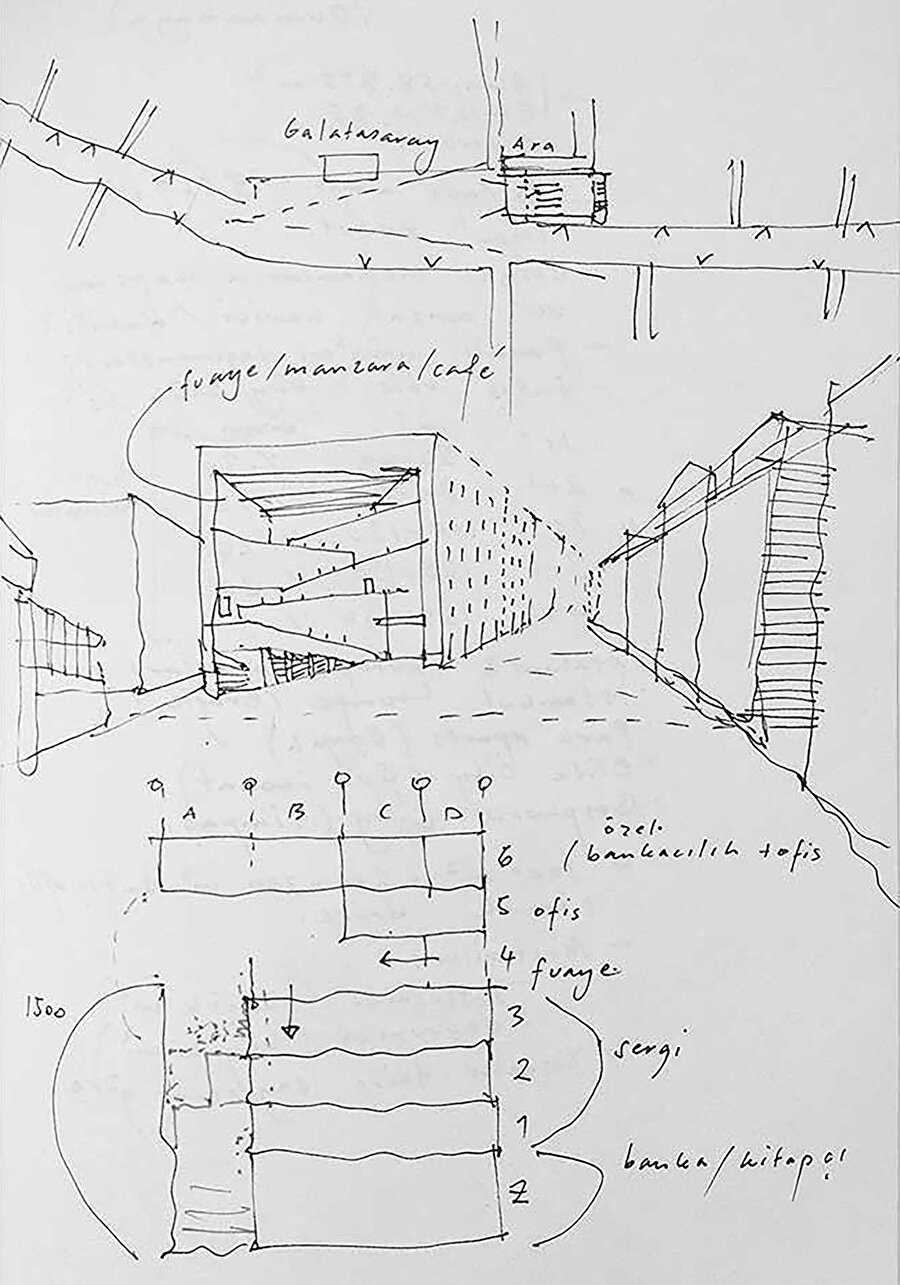 Galatasaray
Ara
fuaye/manzara/café
A B C D
6 özel
/bankacılık + ofis
5 ofis
4 fuaye
1500
3
sergi
2
1
banka/kitapçı
Z